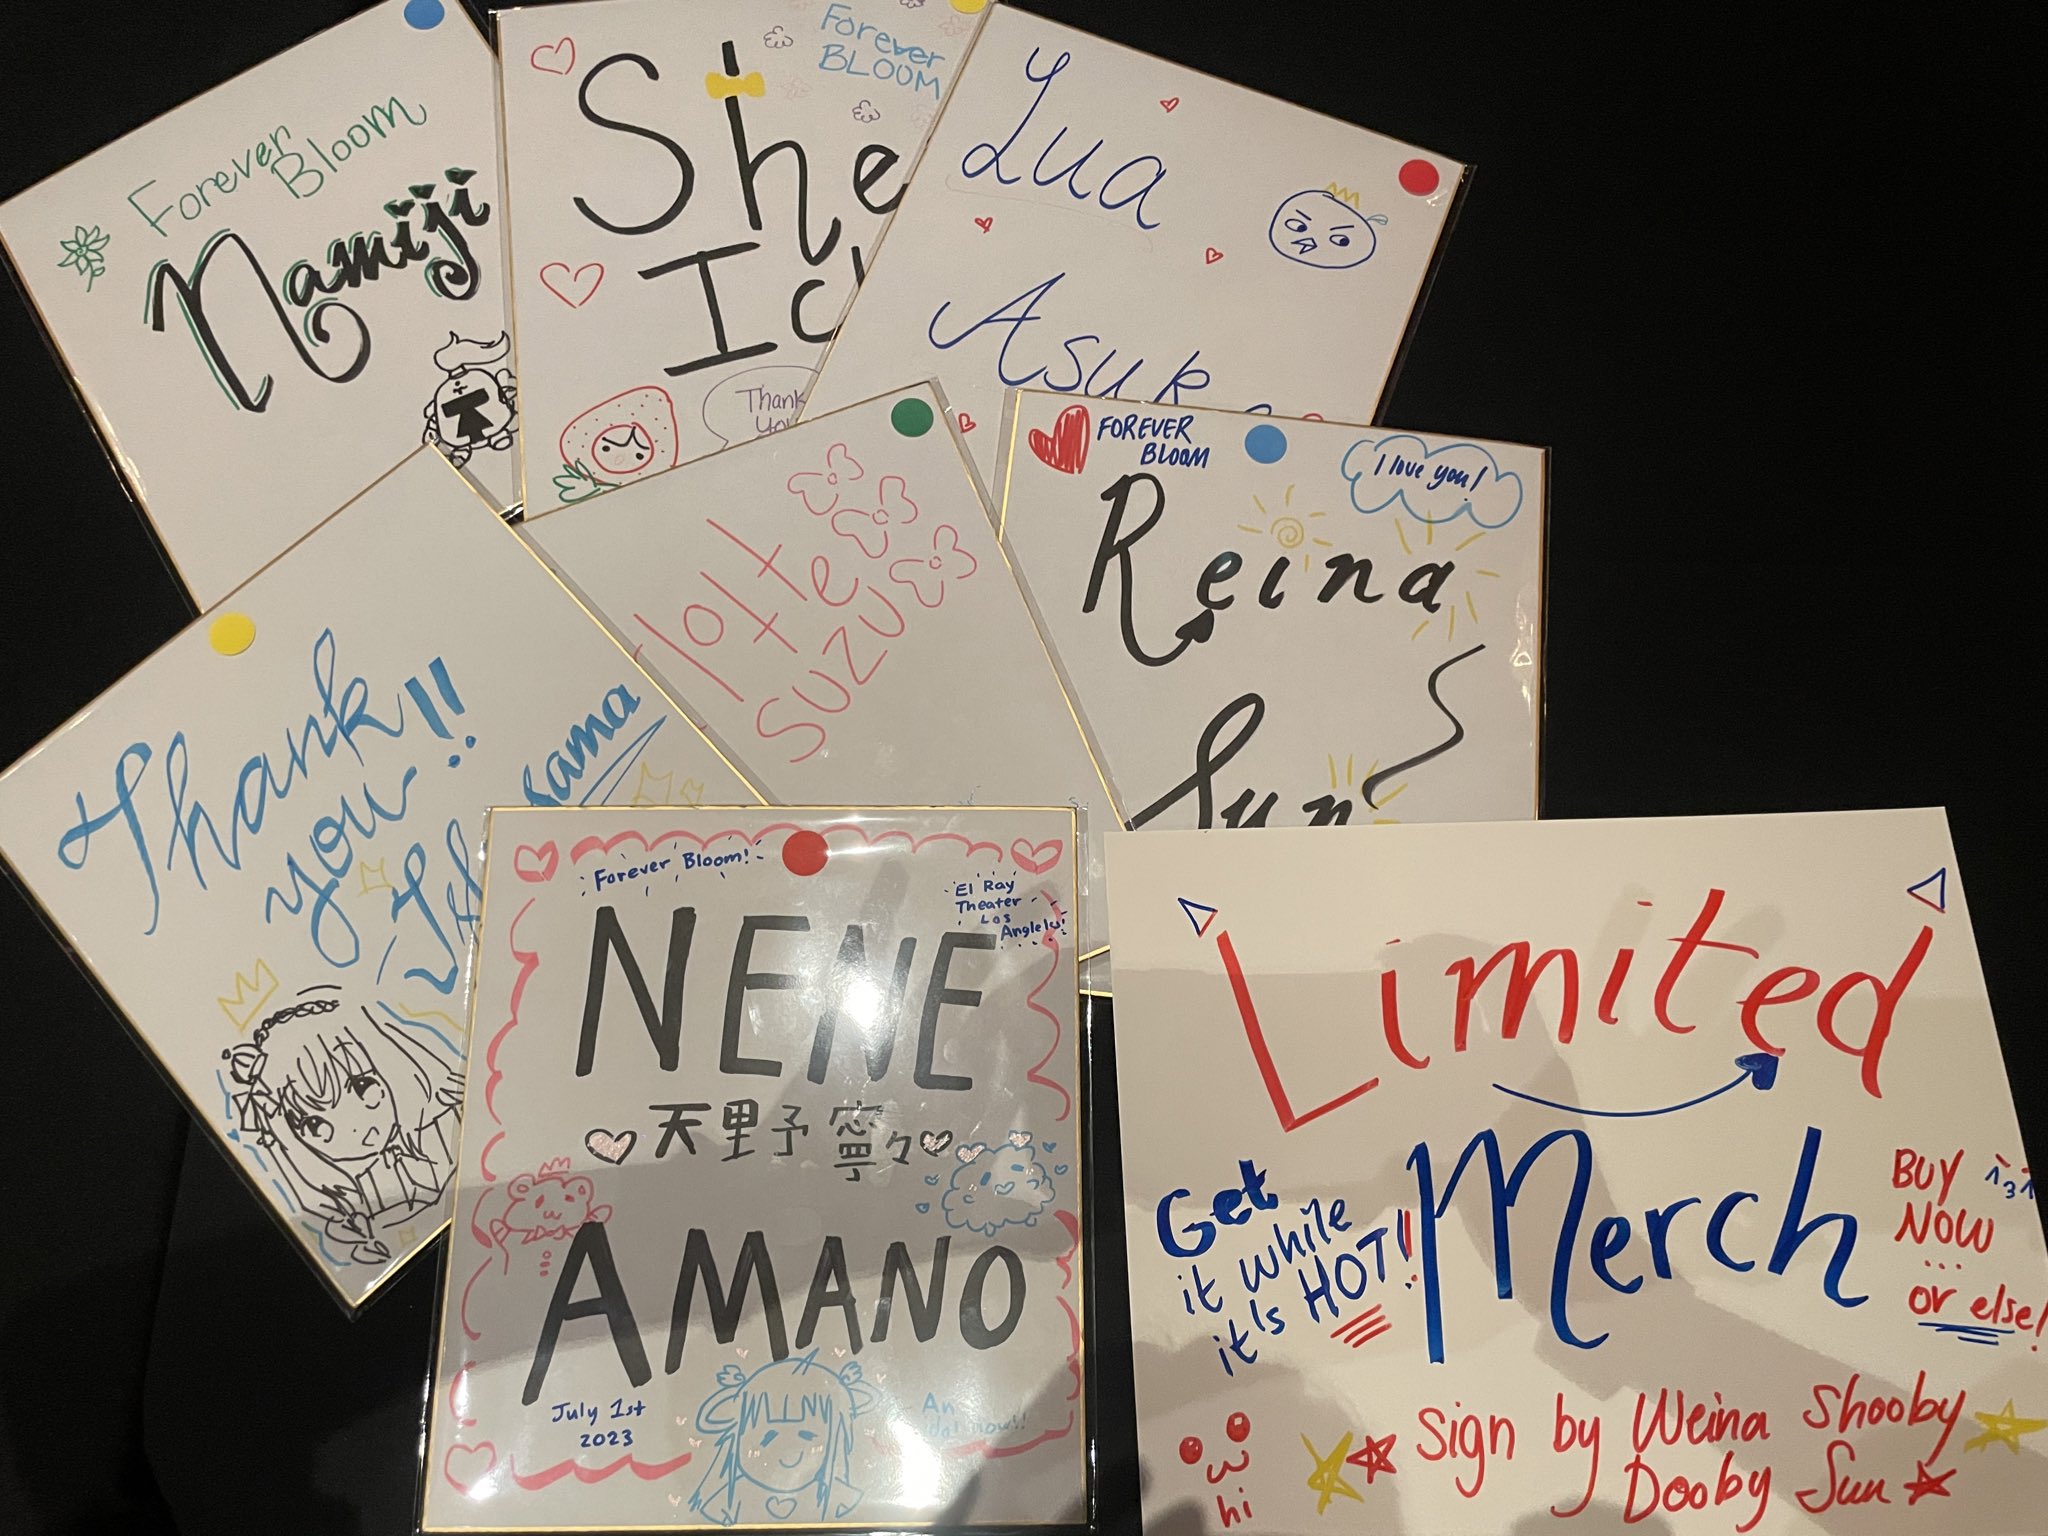 Forever
Bloom
Namiji
Forever
BLOOM
She
Thank
Lua
FOREVER
BLOOM
I love you!
Reina
Sun
lotte
suzu
Thank
you!!
sama
Forever Bloom!
El Ray
Theater
Los
Anglels!
NENE
天里予寧々
AMANO
July 1st
2023
An
Limited
Merch
Get
it while
it's HOT!!
BUY
NOW
...
or else!
Sign by Weina Shooby
Dooby Sun
hi